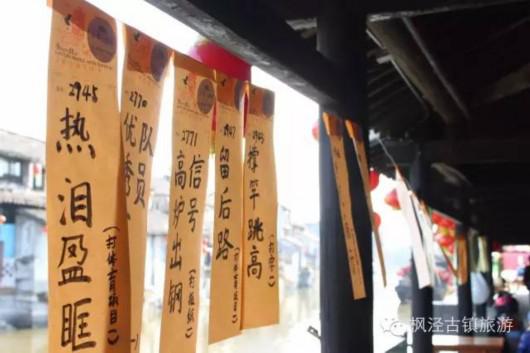 2945
热泪盈眶
(打体育项目)
2770
优秀
队员
2771
高炉出钢
信号
留后路
(打体育项目)
撑竿跳高
(打字)
枫泾古镇旅游